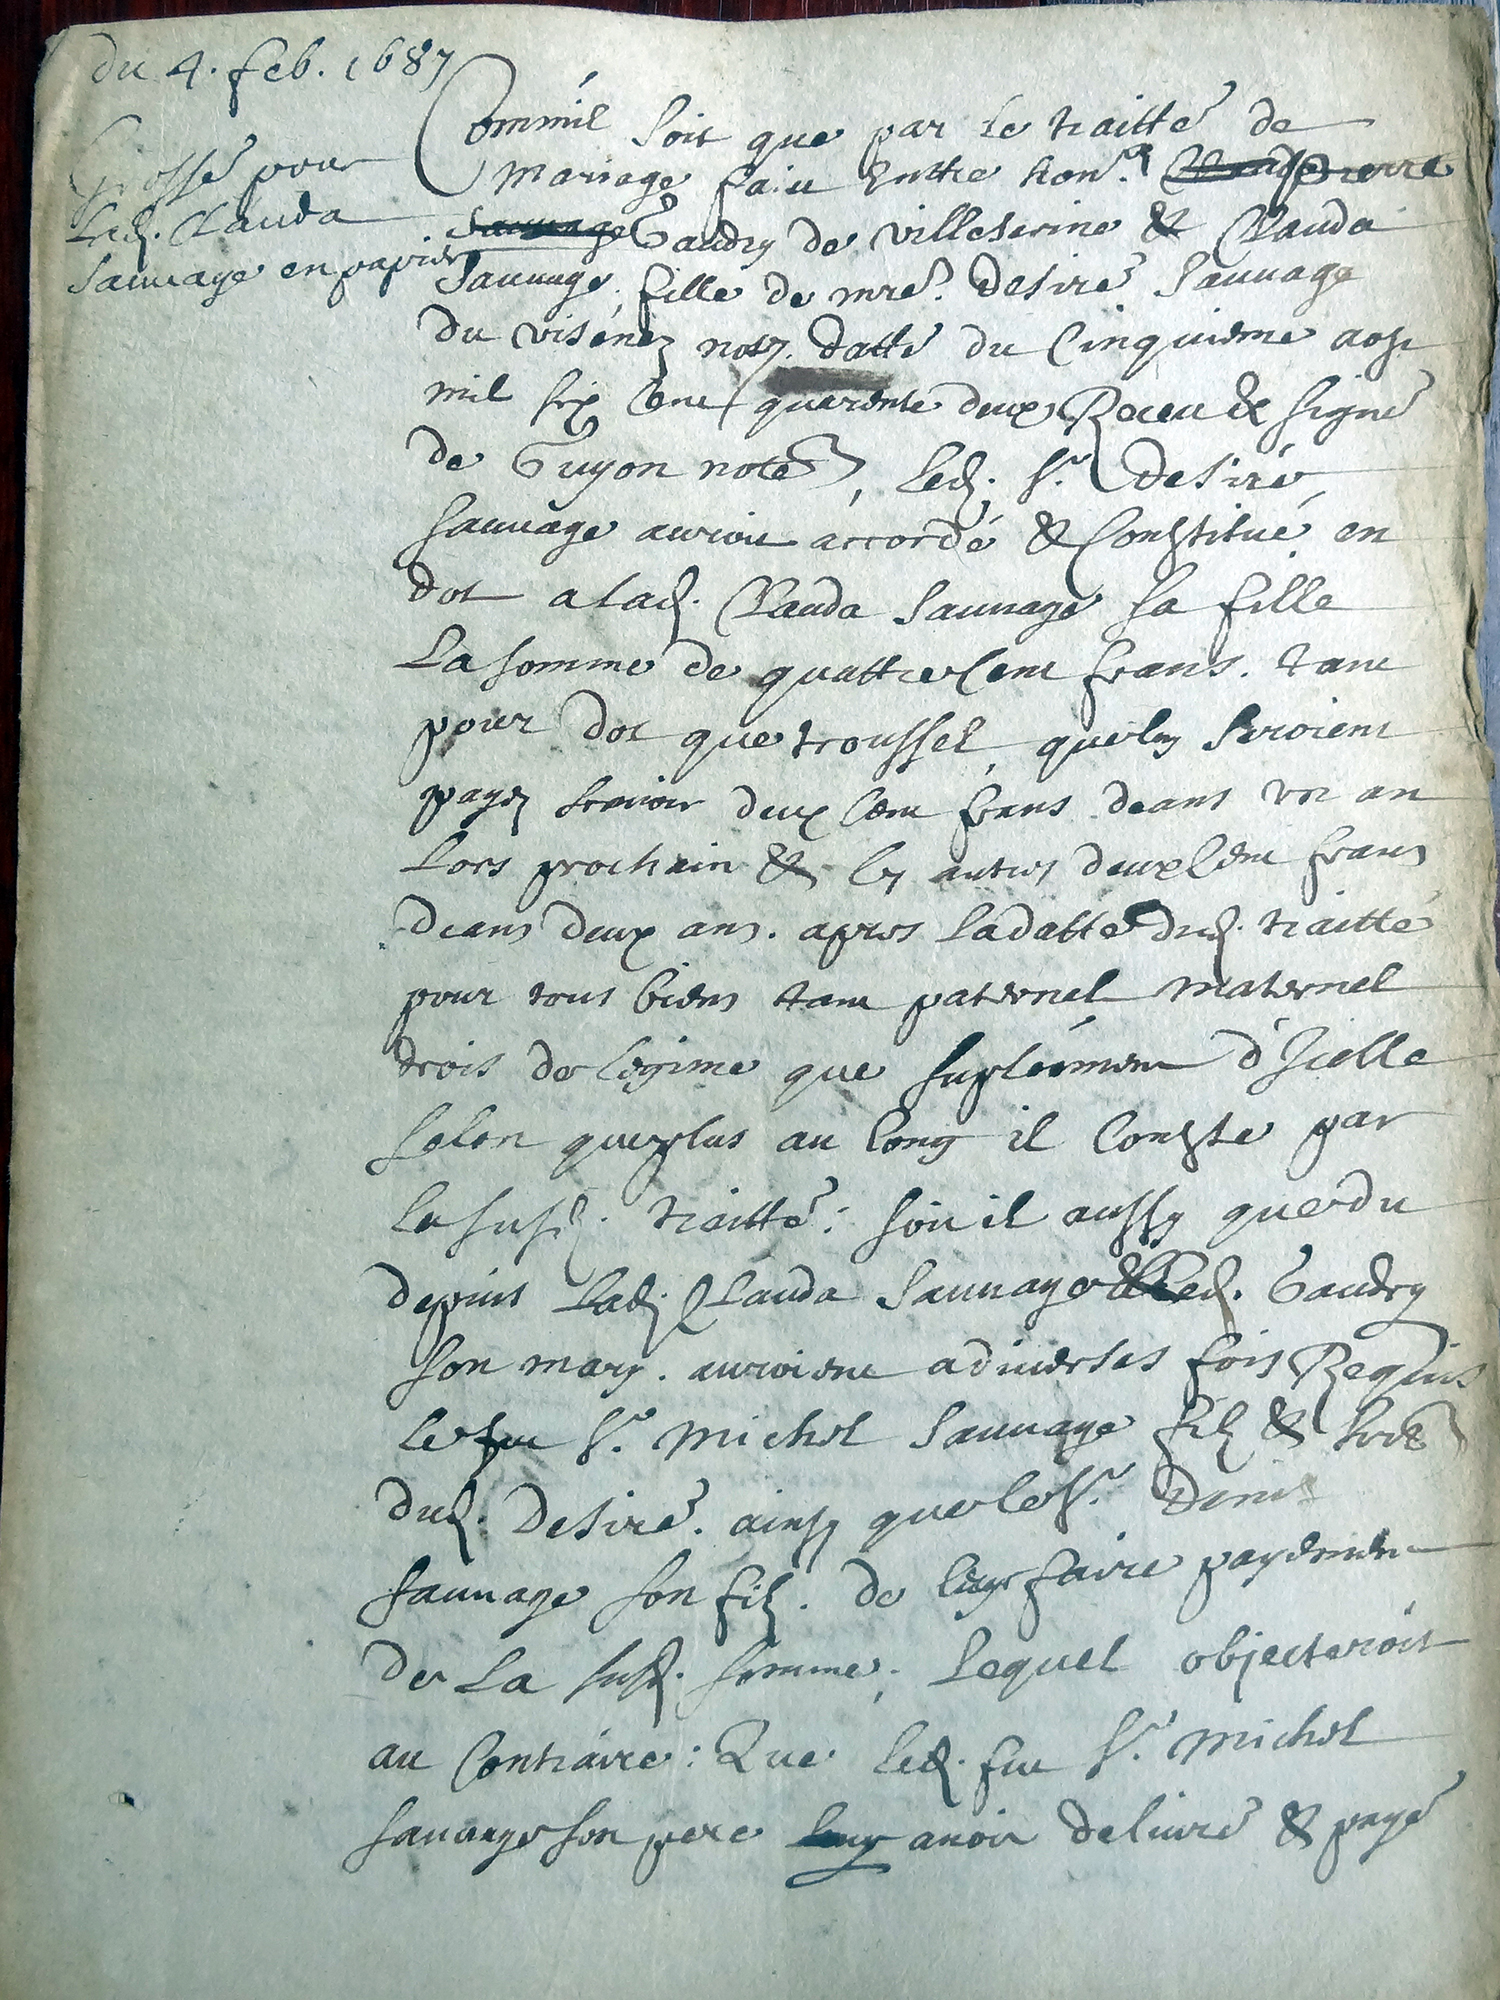 du 4. feb. 1687
Grosse pour
Led. Clauda
Sauvage en papier
Comm'il soit que par le traitté de
Mariage fait Entre hon.^e Pierre
Gaudry de villeserine & Clauda
Sauvage, fille de mre. Desiré Sauvage
du visénez not. datté du Cinquieme aost
mil six Cent quarente deux Receu & signé
de Guyon note, led. s.^r Desiré
sauvage auroit accordé & Constitué en
dot a lad. Clauda Sauvage sa fille
La somme de quattre Cent frans. tant
pour dot que troussel, que luy seroient
payez scavoir deux Cent frans deans un an
Lors prochain & les autres deux Cent frans
deans deux ans. apres la datte dud. traitté
pour tous biens tant paternel maternel
drois de legime que suplément d'Icelle
selon que plus au long il Conste par
le susd. traitté: soit il aussy que du
depuis Lad. Clauda Sauvage & led. Gaudry
son mary. auroient a diverses fois Requis
le fut s.^r Michel Sauvage filz & here
dud. Desiré. ainsy que le s.^r Denis
sauvage son filz. de luy faire payement
de La susd. somme, Lequel objecteroit
au Contraire: Que led. fut s.^r Michel
sauvage son pere Luy avoir delivré & payé